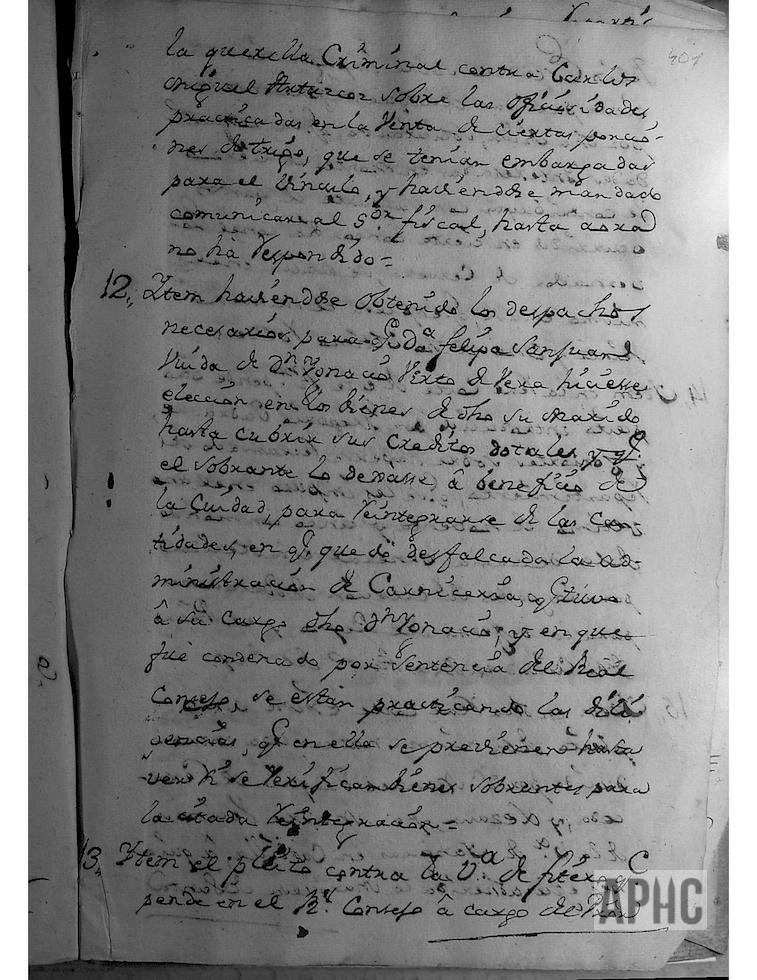 401
la querella Criminal contra Carlos
Miguel sobre las
practicadas en la Venta de ciertas porcio-
nes de trigo, que se tenian embargadas
para el Vinculo, y haviendose mandado
comunicarse al Sor. fiscal, hasta aora
no ha respondido =
12,, Ytem haviendose obtenido los despachos
necesarios para q Da. felipa Sanjuan
Viuda de Dn. Ygnacio de Vera hiciesse
eleccion en los bienes de dho su marido
hasta cubrir sus creditos dotales y q.
el sobrante lo dexasse â beneficio de
la Ciudad, para reintegrarse de las Can-
tidades, en q. quedó desfalcada la ad-
ministracion de Carniceria, q tuvo
â su Cargo dho Dn. Ygnacio; y en que
fué condenado por Sentencia del Real
Consejo, se estan practicando las dili
gencias, q. en ella se previenen hasta
ver si se verifican bienes sobrantes para
la citada reintegracion =
13,, Ytem el pleito contra la Va. de fitero, q
pende en el Rl. Consejo â cargo del
APHC